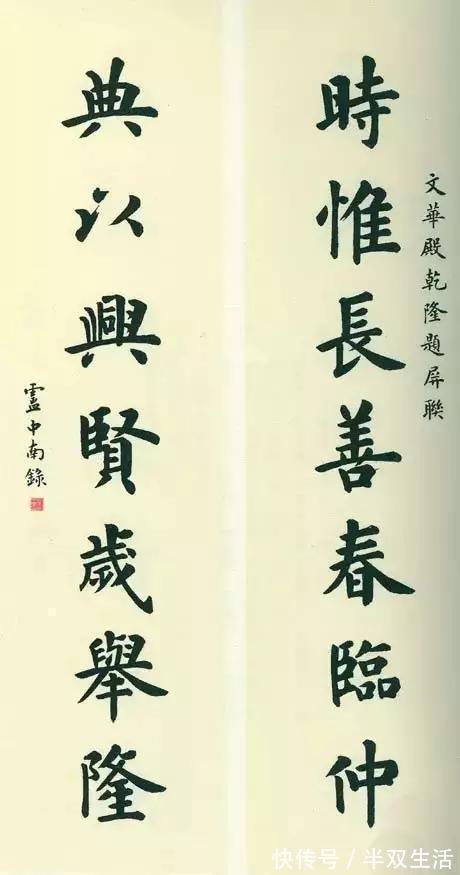 文華殿乾隆題屏聯
時惟長善春臨仲
典以興賢歲舉隆
盧中南錄
快传号／半双生活